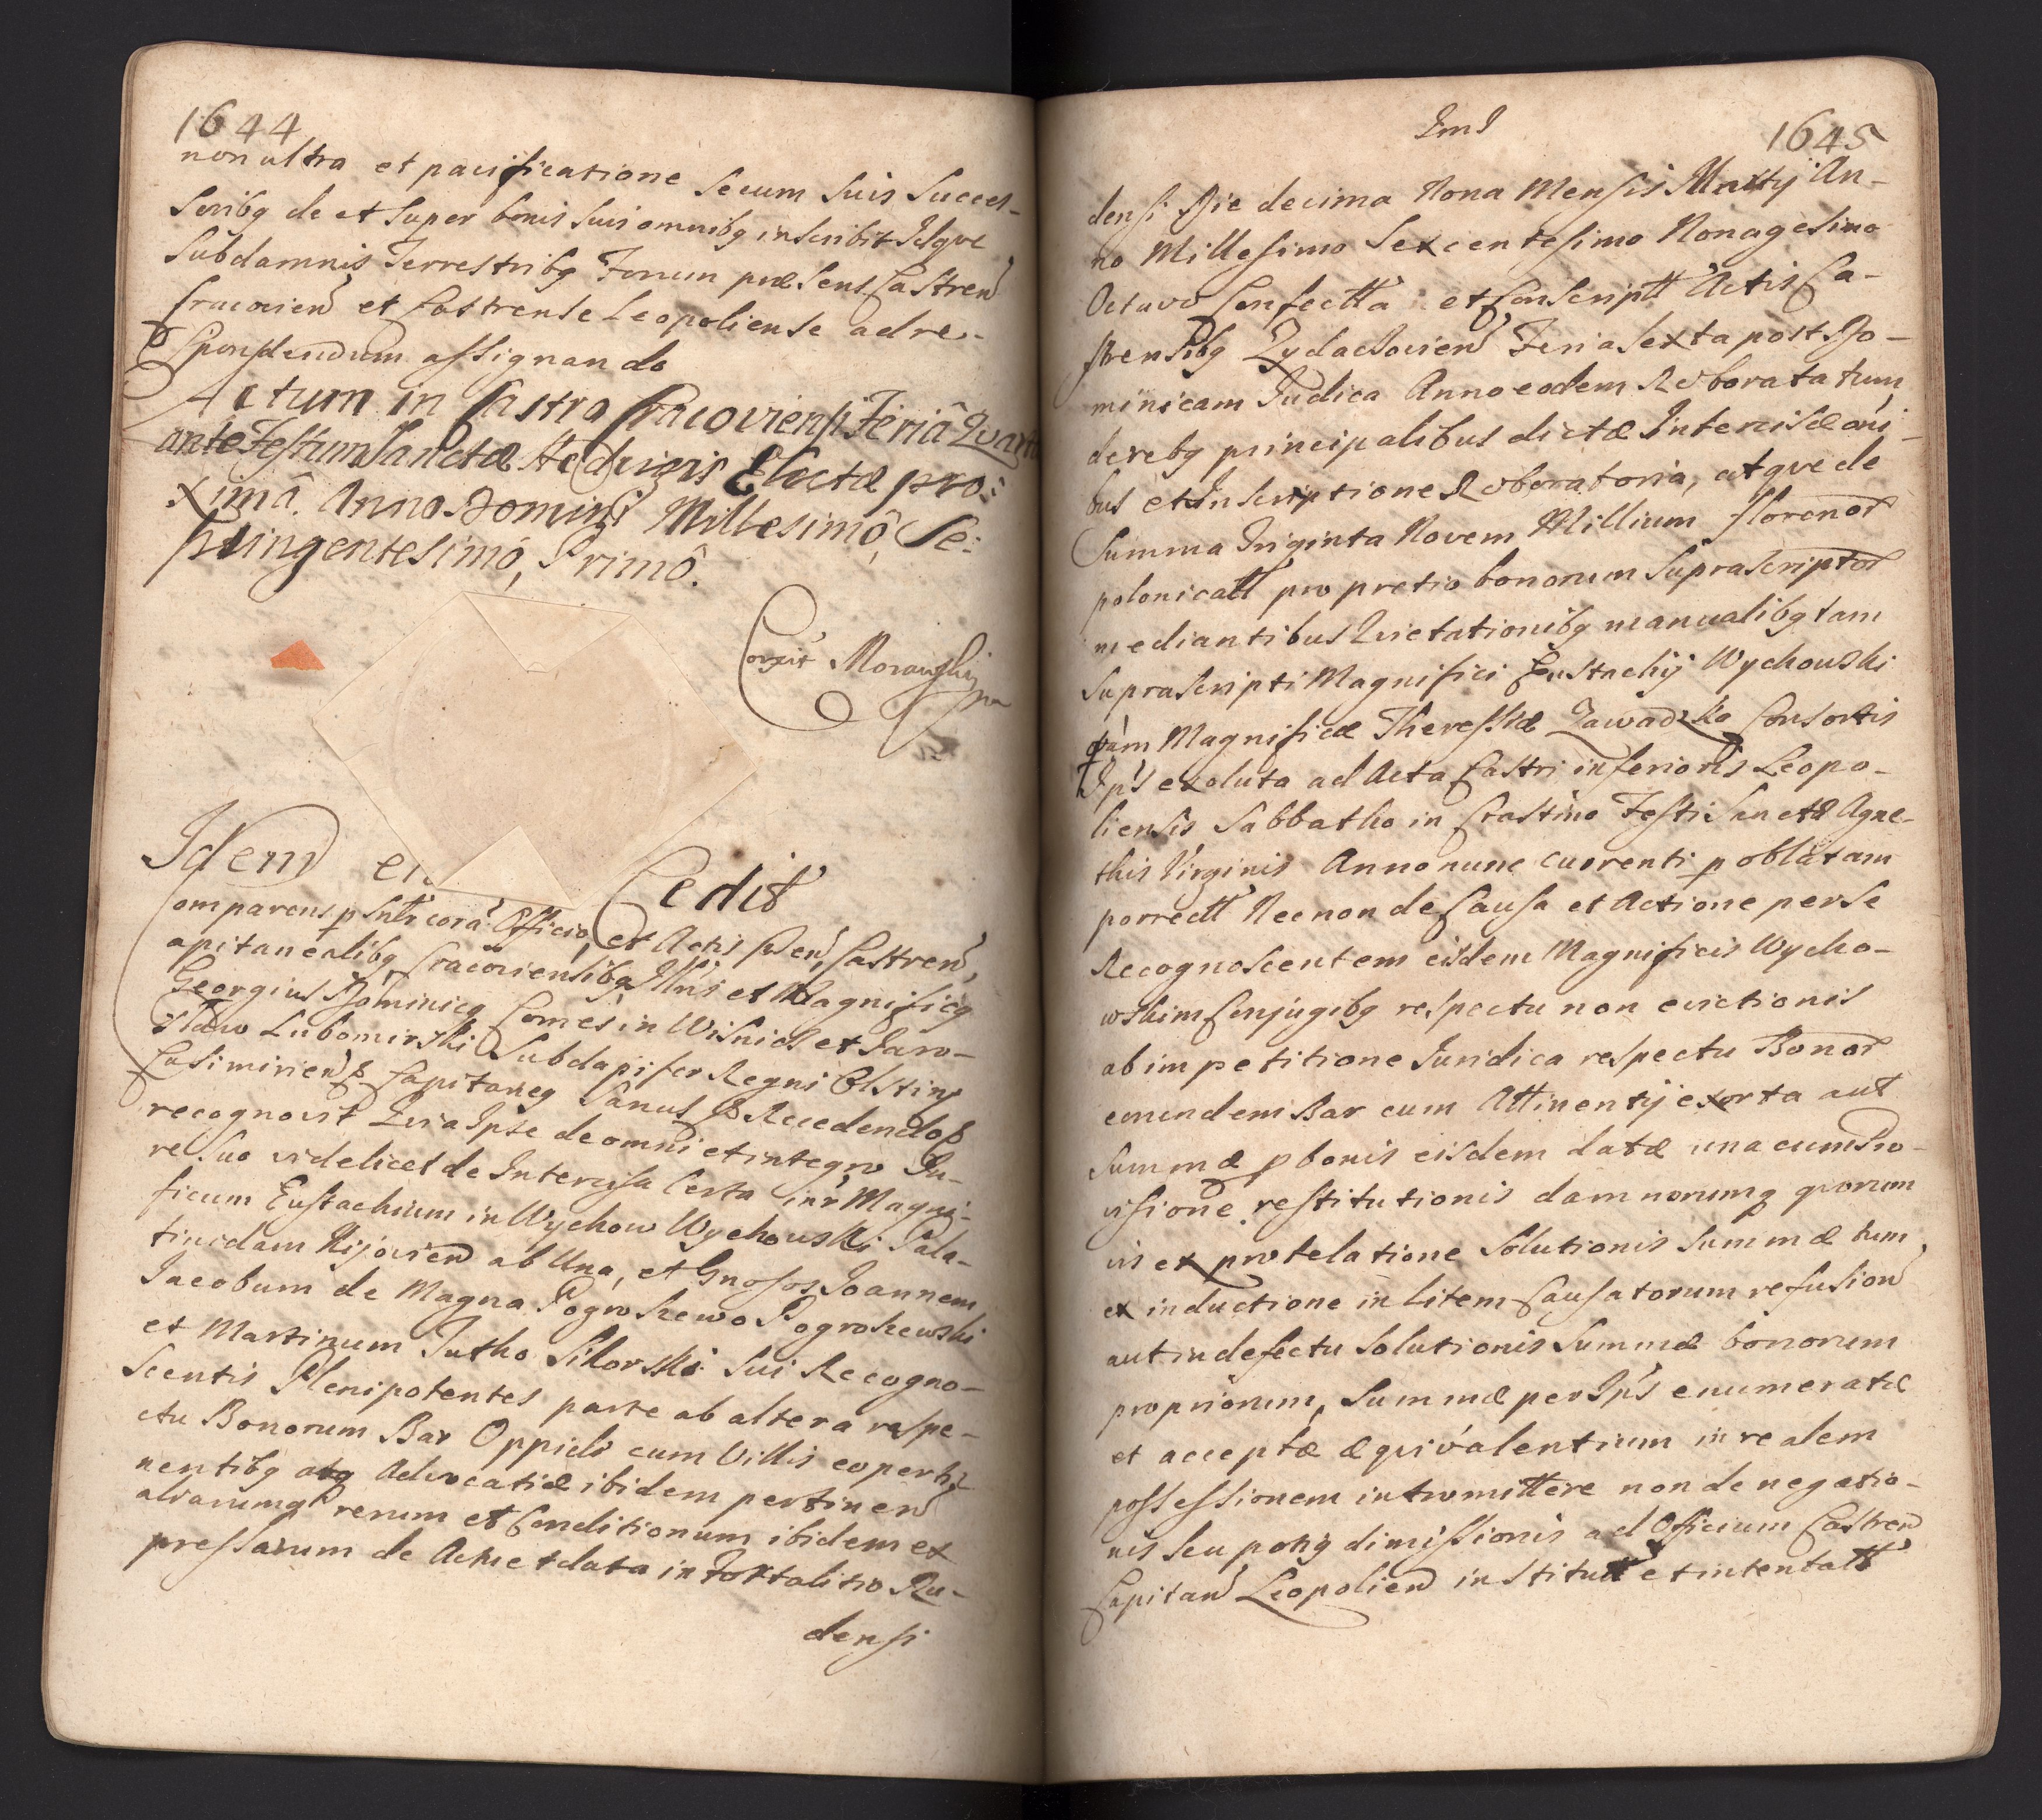 1644
non ultra et pacificatione secum suis succes-
soribq de et super bonis suis omnibq inscribit Idqve
sub damnis Terrestribq Forum præsens Castren
Cracovien et Castrense Leopoliense ad re-
spondendum assignando
Actum in Castro Cracoviensi Feriâ Qvarta
ante Festum Sanctæ Hedvigis Electæ pro-
ximâ. Anno Domini Millesimô, Se:
ptingentesimô, Primô.
Correxit Morawski
mp
Idem ei Cedit
Comparens p sntr corã Officio, et Actis pñen, Castren,
apitanealibq Cracoviensibq Illris et Magnificq
Georgius Dominicq Comes in Wisnicz et Jaro-
slaw Lubomirski Subdapifer Regni Olstinq
Casimirien q Capitaneq Sanus q Recedendo q
recognovit Qvia Ipse de omni et integro Iu-
re suo videlicet de Intercisa Certa intr Magni-
ficum Eustachium in Wychow Wychowski Pala-
tinidam Kijovien ab Una, et Gnosos Joannem
Jacobum de Magna Pogroszewo Pogroszewski
et Martinum Jutho Sikorski sui Recogno-
scentis Plenipotentes parte ab altera respe-
ctu Bonorum Bar Oppidi cum Villis eo perti-
nentibq atq Advocatiæ ibidem pertinen
aliarumq rerum et Conditionum ibidem ex
pressarum de Actu et data in Fortalitio Ru-
densi
ImI
1645
densi Die decima Nona Mensis Martij An-
no Millesimo Sexcentesimo Nonagesimo
Octavo Confectta et Conscriptt Actis Ca-
strensibq Zydaczovien Feria Sexta post Do-
minicam Judica Anno eodem Roborata tum
de rebq principalibus dictæ Intercisæ oñi-
bus et Inscriptione Roboratoria, atqve de
Summa Triginta Novem Millium florenor
polonicall pro pretio bonorum supra scriptor
mediantibus Qvietationibq manualibq tam
suprascripti Magnifici Eustachij Wychowski
qvam Magnificæ Theressiæ Zawadzka Consortis
Ips exoluta ad Acta Castri inferioris Leopo-
liensis Sabbatho in Crastino Festi Sanctæ Agne-
this Virginis Anno nunc currenti p oblatam
porrectt Necnon de Causa et Actione per se
Recognoscentem eisdem Magnificis Wycho-
wskim Conjugibq respectu non evictionis
ab impetitione Iuridica respectu Bonor
eorundem Bar cum Attinentij exorta aut
summæ p bonis eisdem datæ una cum Pro-
visione restitutionis damnorumq qvorum
vis ex protelatione Solutionis summæ tum
ex inductione in Litem Causatorum refusion
aut in defectu Solutionis Summæ bonorum
propriorum, summæ per Ips enumeratæ
et acceptæ æqvivalentium in realem
possessionem intromittere non denegatio-
nis seu potiq dimissionis ad Officium Castren
Capitan Leopolien institutt et intentatt